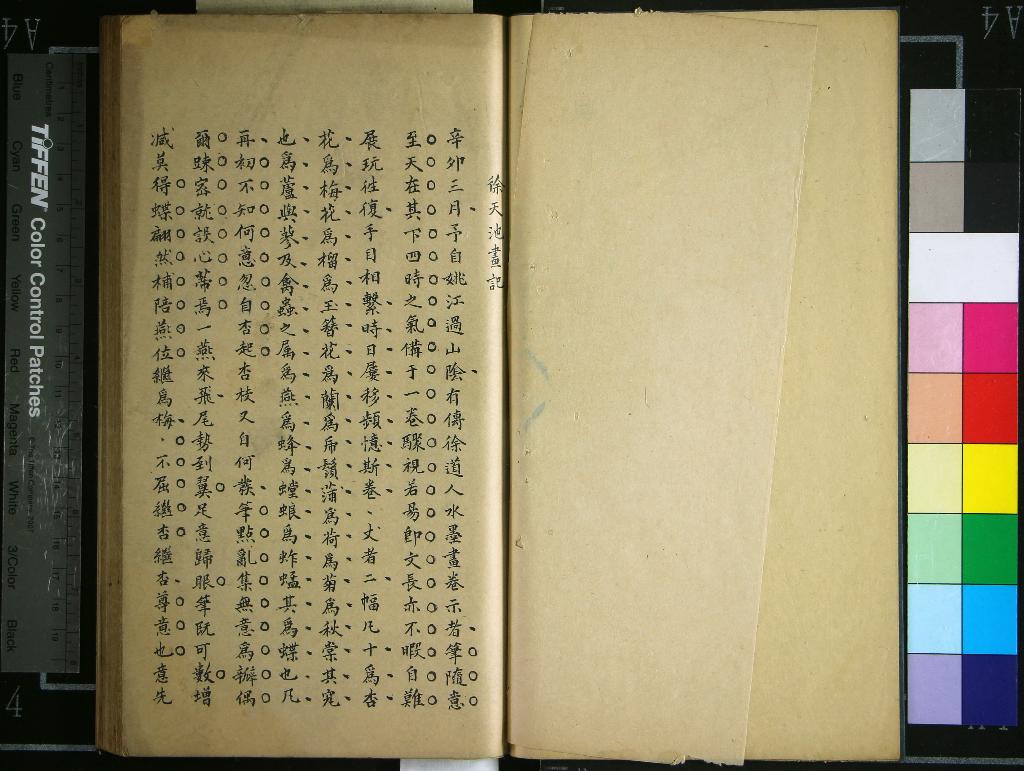 徐天池畫記
辛卯三月予自姚江過山陰有傳徐道人水墨畫卷示者筆隨意
至天在其下四時之氣備于一卷驟視若易即文長亦不暇自難
展玩往復手目相繫時日屢移頻憶斯卷、丈者二幅凡十爲杏
花爲梅花爲榴爲玉簪花爲蘭爲帚鬚蒲爲荷爲菊爲秋棠其究
也爲蘆與蓼及禽蟲之属爲燕爲蜂爲螳蜋爲蚱蜢其爲蝶也凡
再初不知何意忽自杏起杏枝又自何發筆點亂集無意爲辦偶
爾踈密就設心蒂焉一燕來飛尾勢到翼足意歸眼筆既可數增
减莫得蝶翩然補陪燕位繼爲梅、不屈繼杏繼杏尊意也意先
TIFFEN Color Control Patches
Blue Cyan Green Yellow Red Magenta White 3/Color Black
Centimetres
A4
A4
4